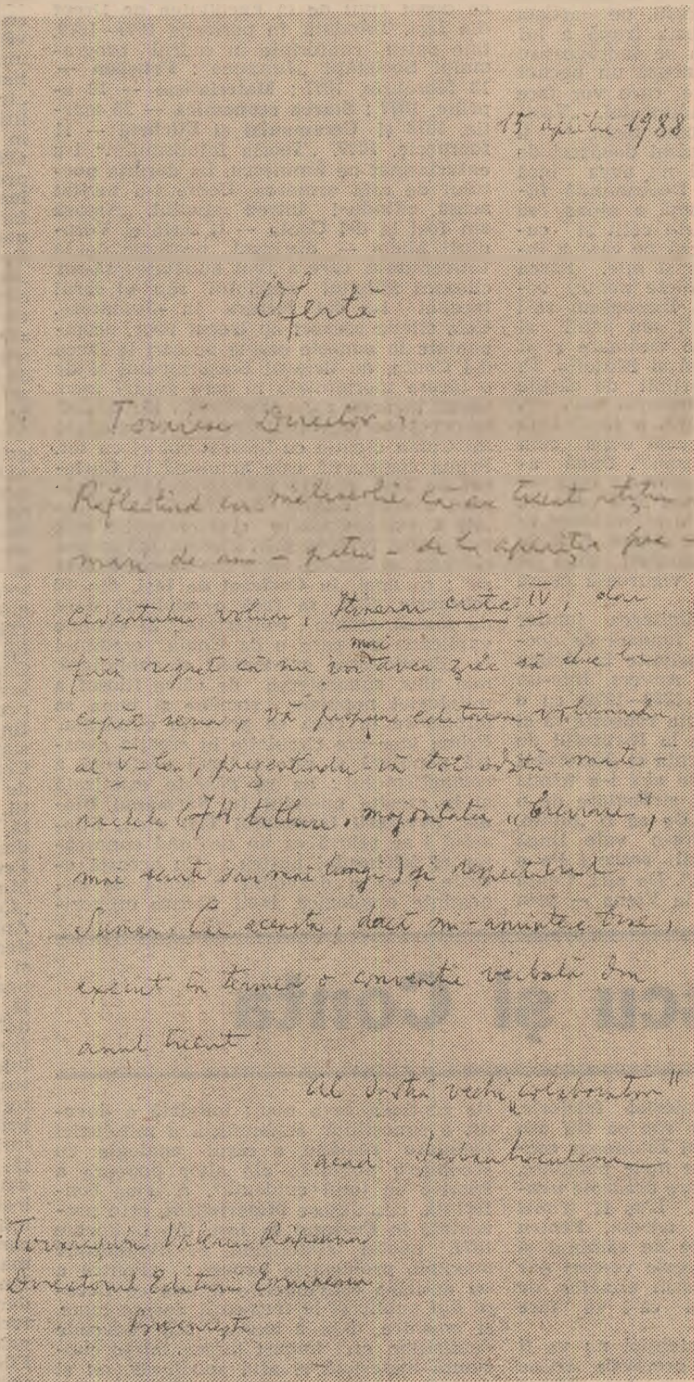 15 aprilie 1988
Ofertă
Tovarășe Director,
Reflectînd cu melancolie că au trecut
mari de ani – patru – de la apariția pre-
cedentului volum, Itinerar critic IV, dar
fără regret că nu voi mai avea zile să duc la
capăt seria, vă propun editarea volumului
al V-lea, prezentîndu-vă tot odată mate-
rialele (74 titluri, majoritatea „breviare",
mai scurte sau mai lungi) și respectivul
Sumar. Cu aceasta, dacă mi-amintesc bine,
execut în termen o convenție verbală din
anul trecut.
Al Dvstră vechi „colaborator"
acad. Șerban Cioculescu
Tovarășului Valeriu Râpeanu
Directorul Editurii Eminescu
București
cu și Conta